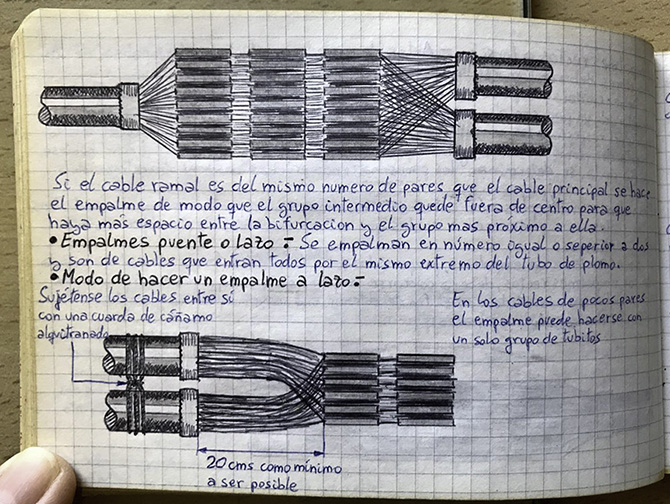 Si el cable ramal es del mismo numero de pares que el cable principal se hace
el empalme de modo que el grupo intermedio quede fuera de centro para que
haya más espacio entre la bifurcacion y el grupo mas proximo a ella.
•Empalmes puente o lazo = Se empalman en número igual o seperior a dos
y son de cables que entran todos por el mismo extremo del tubo de plomo.
•Modo de hacer un empalme a lazo=
Sujétense los cables entre sí
con una cuarda de cáñamo
alquitranado
En los cables de pocos pares
el empalme puede hacerse con
un solo grupo de tubitos
20 cms como mínimo
a ser posible